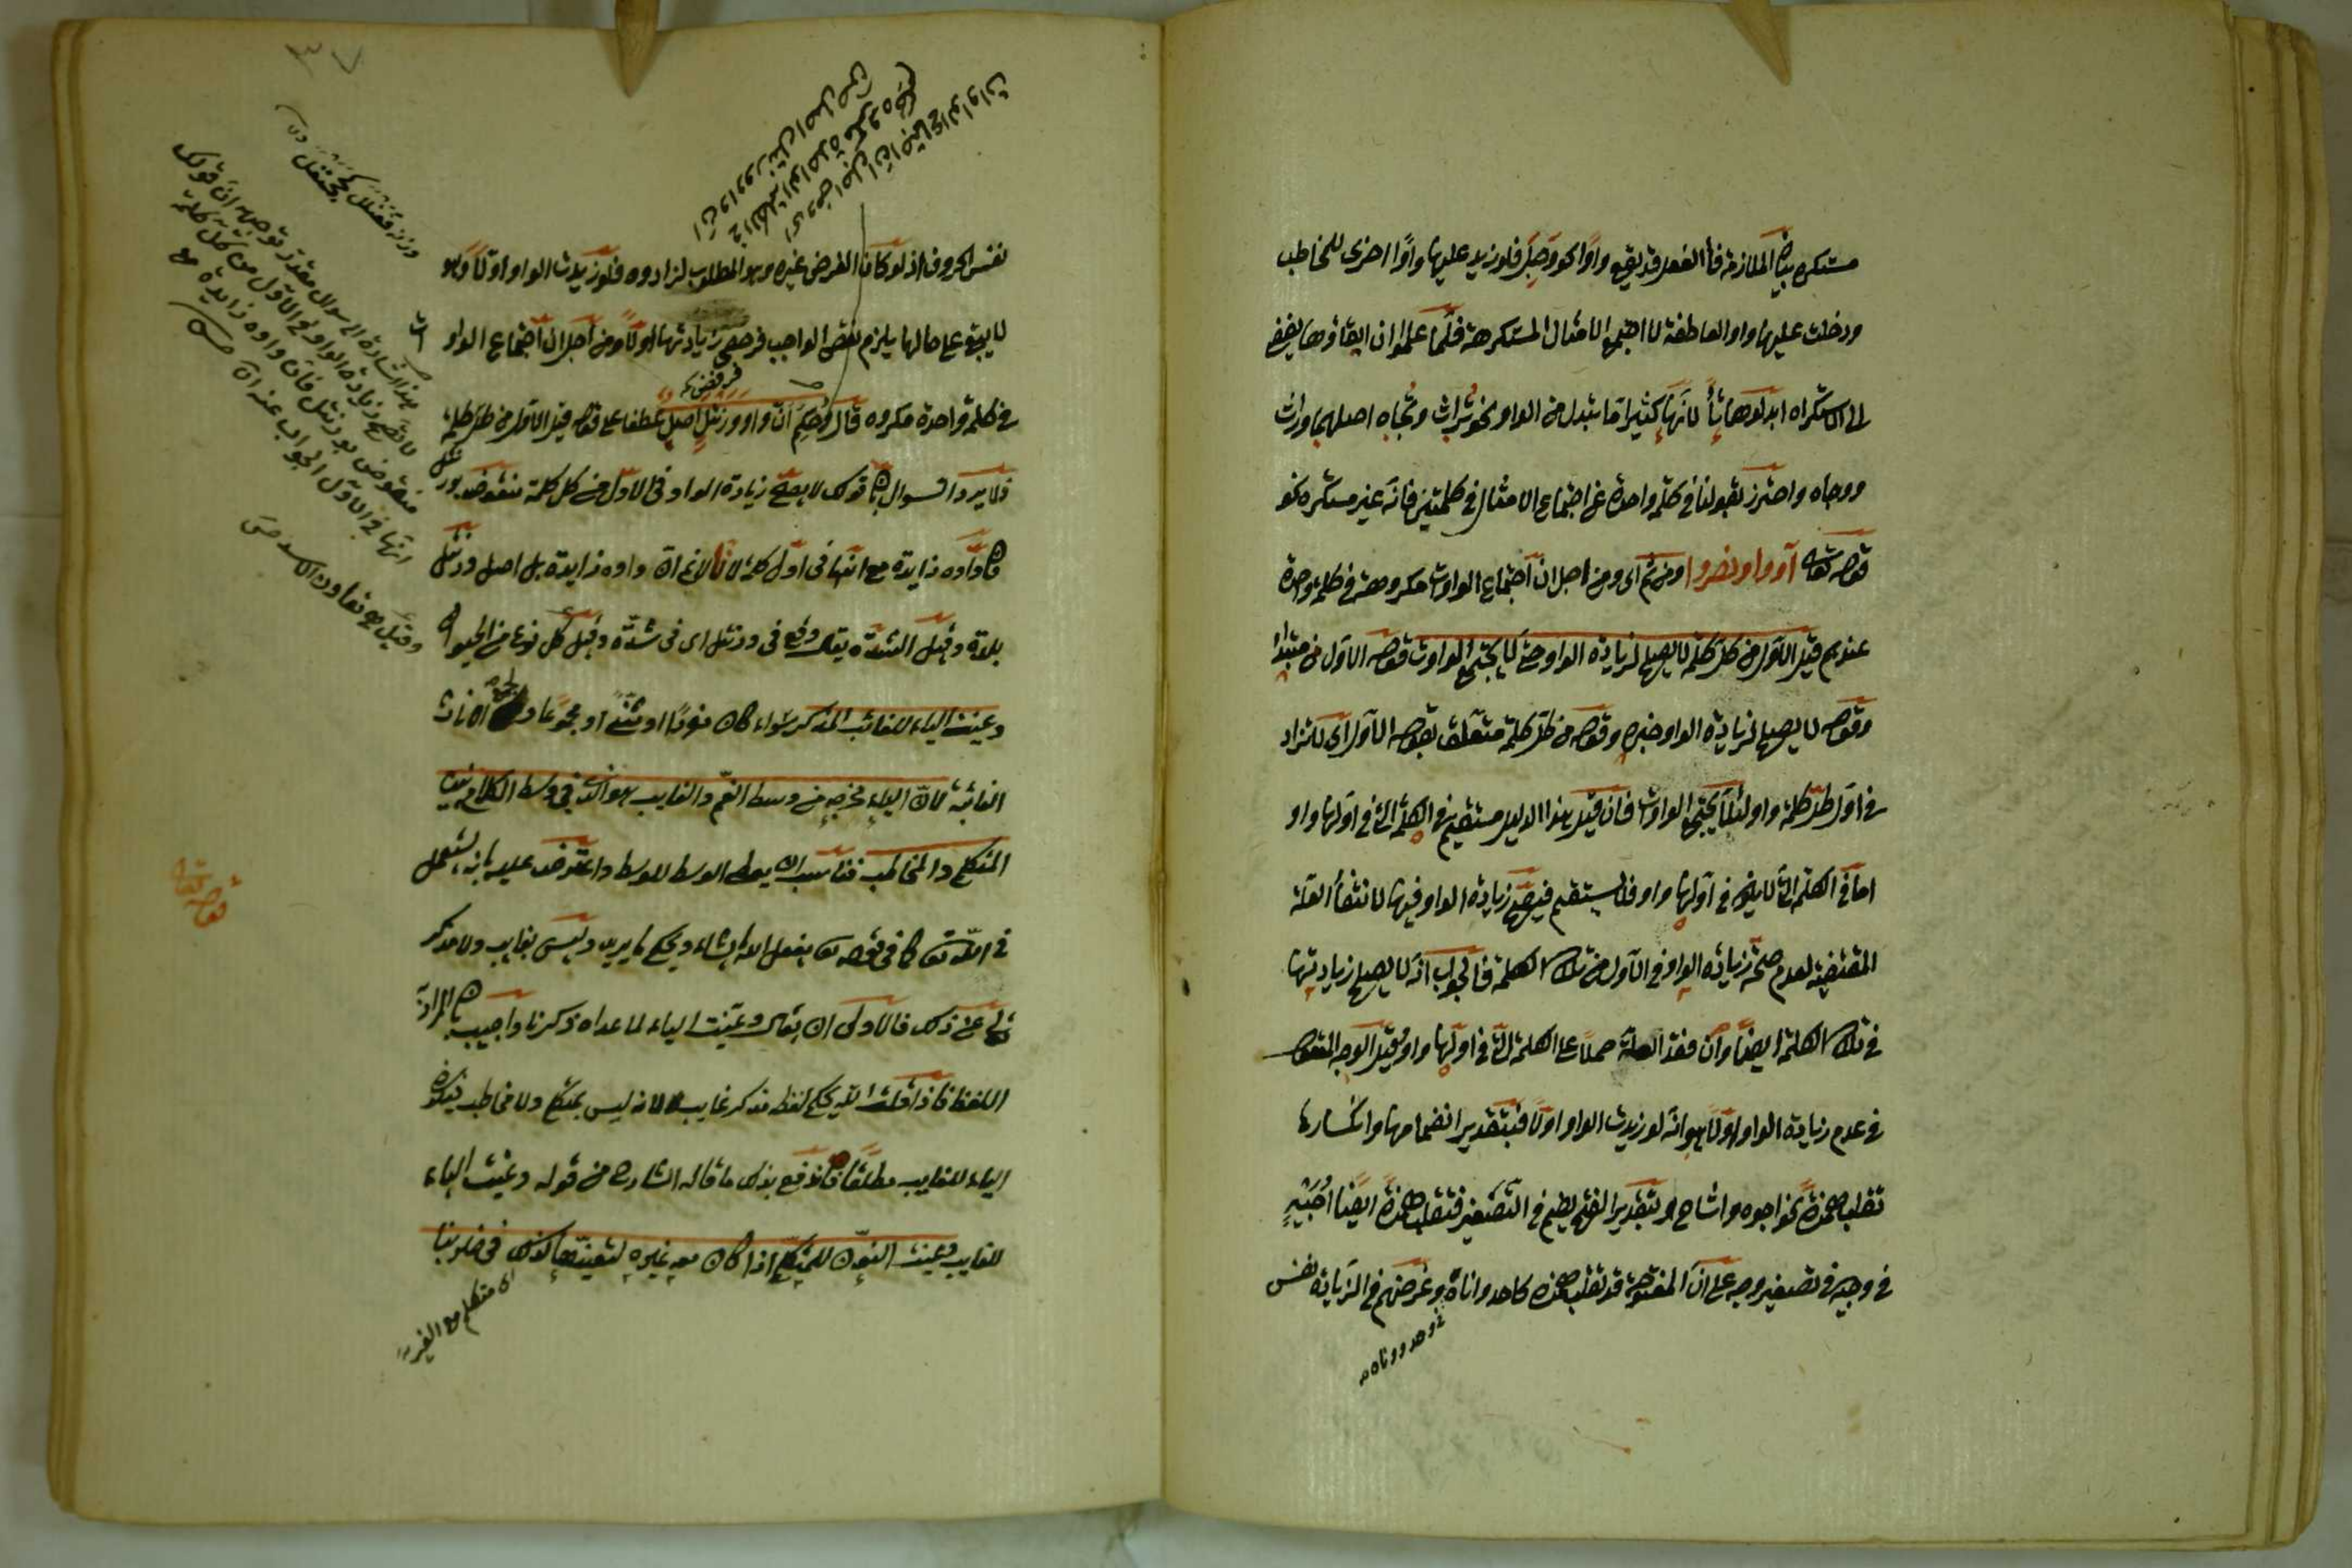 مستكره بيان الملازمة فأ الفعل قد يقع واوا نحو وجل فلو زيد عليها واوا اخرى للمخاطب
ودخلت عليها واو العاطفة لا اجتمع الامثال المستكرهة فلما علموا ان ابقاؤها يفضى
الى الاستكراه ابدلوها تأ لانها كثيرا ما يتبدل من الواو نحو تراث وتجاه اصلهما وراث
ووجاه واحترز بقولنا فى كلمة واحدة عن اجتماع الامثال فى كلمتين فانه غير مستكره نحو
قوله تعالى آووا ونصروا ومن ثم اى ومن اجل ان اجتماع الواوات مكروهة فى كلمة واحدة
عندهم قيل الاول من كل كلمة لا يصلح لزيادة الواو حتى لا يجتمع الواوات قوله الاول من مبتدا
وقوله لا يصلح لزيادة الواو خبره وقوله من كل كلمة متعلق بقوله الاول اى لا تزاد
فى اول كل كلمة واو لئلا يجتمع الواوات فان قيل هذا الدليل مستقيم فى الكلمة التى فى اولها واو
اما فى الكلمة التى لا يكون فى اولها واو فلا يستقيم فيصح زيادة الواو فيها لانتفأ العلة
المقتضية لعدم صحة زيادة الواو فى الاول من تلك الكلمة فالجواب انه لا يصلح زيادتها
فى تلك الكلمة ايضا وان فقد العلة حملا على الكلمة التى فى اولها واو وقيل الوجه
فى عدم زيادة الواو اولا هو انه لو زيدت الواو اولا فبتقدير انضمامها وانكسارها
تقلب همزة نحو اجوه واشاح وبتقدير الفتح يضم فى التصغير فتقلب همزة ايضا اجيه
فى وجيه فى تصغير وجه على ان المفتوحة قد تقلب همزة كاحد واناة وغرضهم فى الزيادة نفس
وحد ووناة
نفس الحروف اذ لو كان الغرض غيره وهو المطلوب لزادوه فلو زيدت الواو اولا وهو
لا يبقى على حالها يلزم نقض الواجب فرضى زيادتها اولا ومن اجل ان اجتماع الواو
فى كلمة واحدة مكروه قال وحكم ان واو ورنتل اصل عطفا على قوله قيل الاول من كل كلمة
فلا يرد السوال بان قولك لا يصلح زيادة الواو فى الاول من كل كلمة منقوض بورنتل
فان واوه زايدة مع انها فى اول كلمة لانا لانم ان واوه زايدة بل اصل ورنتل
بلدة وقيل الشدة يقال وقع فى ورنتل اى فى شدة وقيل كل نوع من الحيوان
وعينت الياء للغائب المذكر سواء كان مفردا او مثنى او مجموعا ولجمع الاناث
الغائبة لان الياء مخرجه من وسط الفم والغايب هو الذى فى وسط الكلام بين
المتكلم والمخاطب فناسب ان يعطى الوسط للوسط واعترض عليه بانه يستعمل
فى الله تعالى كما فى قوله تعالى يفعل الله ما يشاء ويحكم ما يريد وليس بغايب ولا مذكر
تعالى عن ذلك فالاولى ان يقال وعينت الياء لما عداه ذكرنا واجيب بان المراد
اللفظ فاذا قلت الله يحكم لفظ مذكر غايب لانه ليس بمتكلم ولا مخاطب
الياء للغايب مطلقا فاندفع بذلك ما قاله الشارح من قوله وعينت الياء
للغايب وعينت النون للمتكلم اذا كان معه غيره لتعينها لذلك فى ضربنا
اى متكلم مع الغير
اى ومن اجل ان اجتماع الواوات
فى الكلمة الواحدة مكروه حكم
ان واو ورنتل اصل
هذا اشارة الى سوال مقدر توجيهه ان قولك
لا تصح زيادة الواو فى الاول من كل كلمة
منقوض بورنتل فان واوه زايدة مع
انها فى الاول الجواب عنه ان
قوله تعالى
٣٧